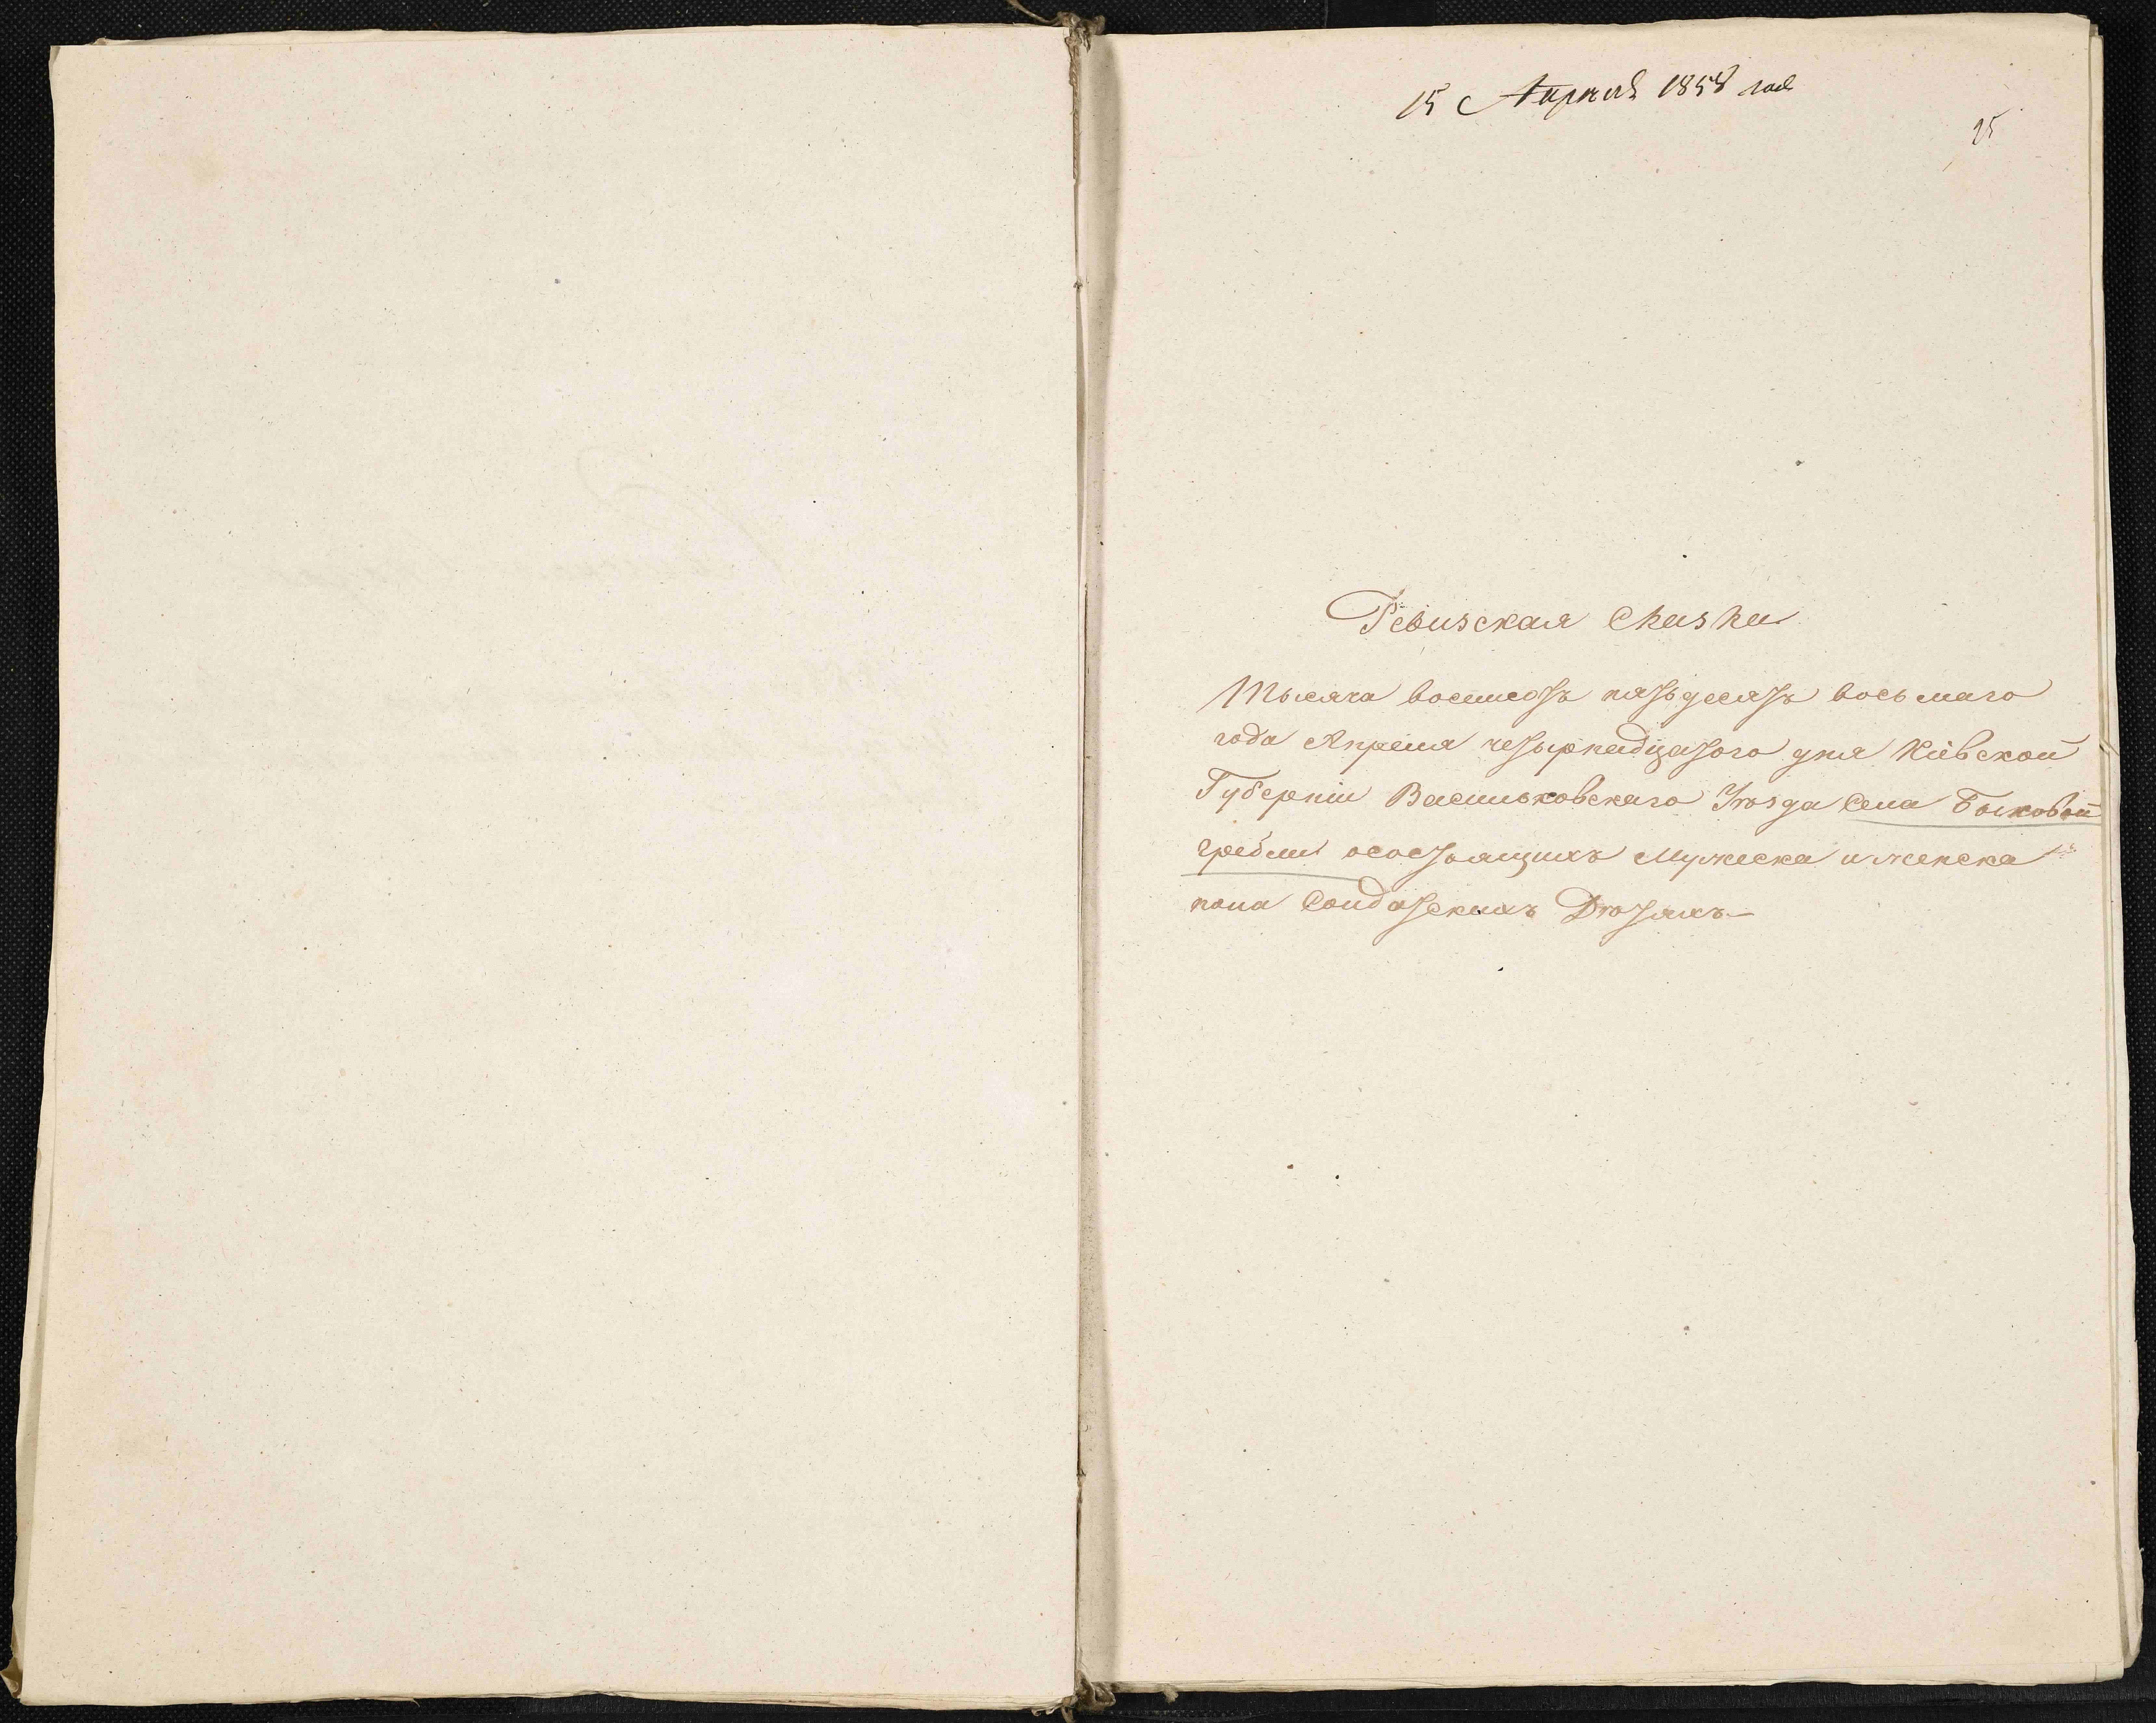 15 Апреля 1858 года
25
Ревизская Сказка
Тысяча восемсотъ пятьдесятъ восьмаго
года Апреля четырнадцатого дня Кіевской
Губерніи Васильковскаго Уѣзда Села Быковой
гребли осостоящихъ Мужеска иженска
пола Солдатскихъ Дѣтяхъ